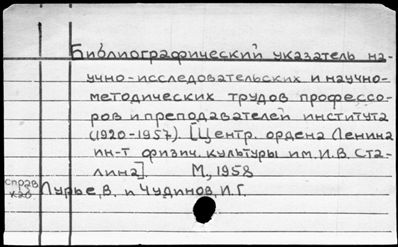 Библиографический указатель на-
учно-исследовательских и научно-
методических трудов профессо-
ров и преподавателей института
(1920-1957). [Центр. ордена Ленина
ин-т физич. культуры им. И. В. Ста-
лина]. М., 1958
справ
каб
Лурье, В. и Чудинов, И. Г.